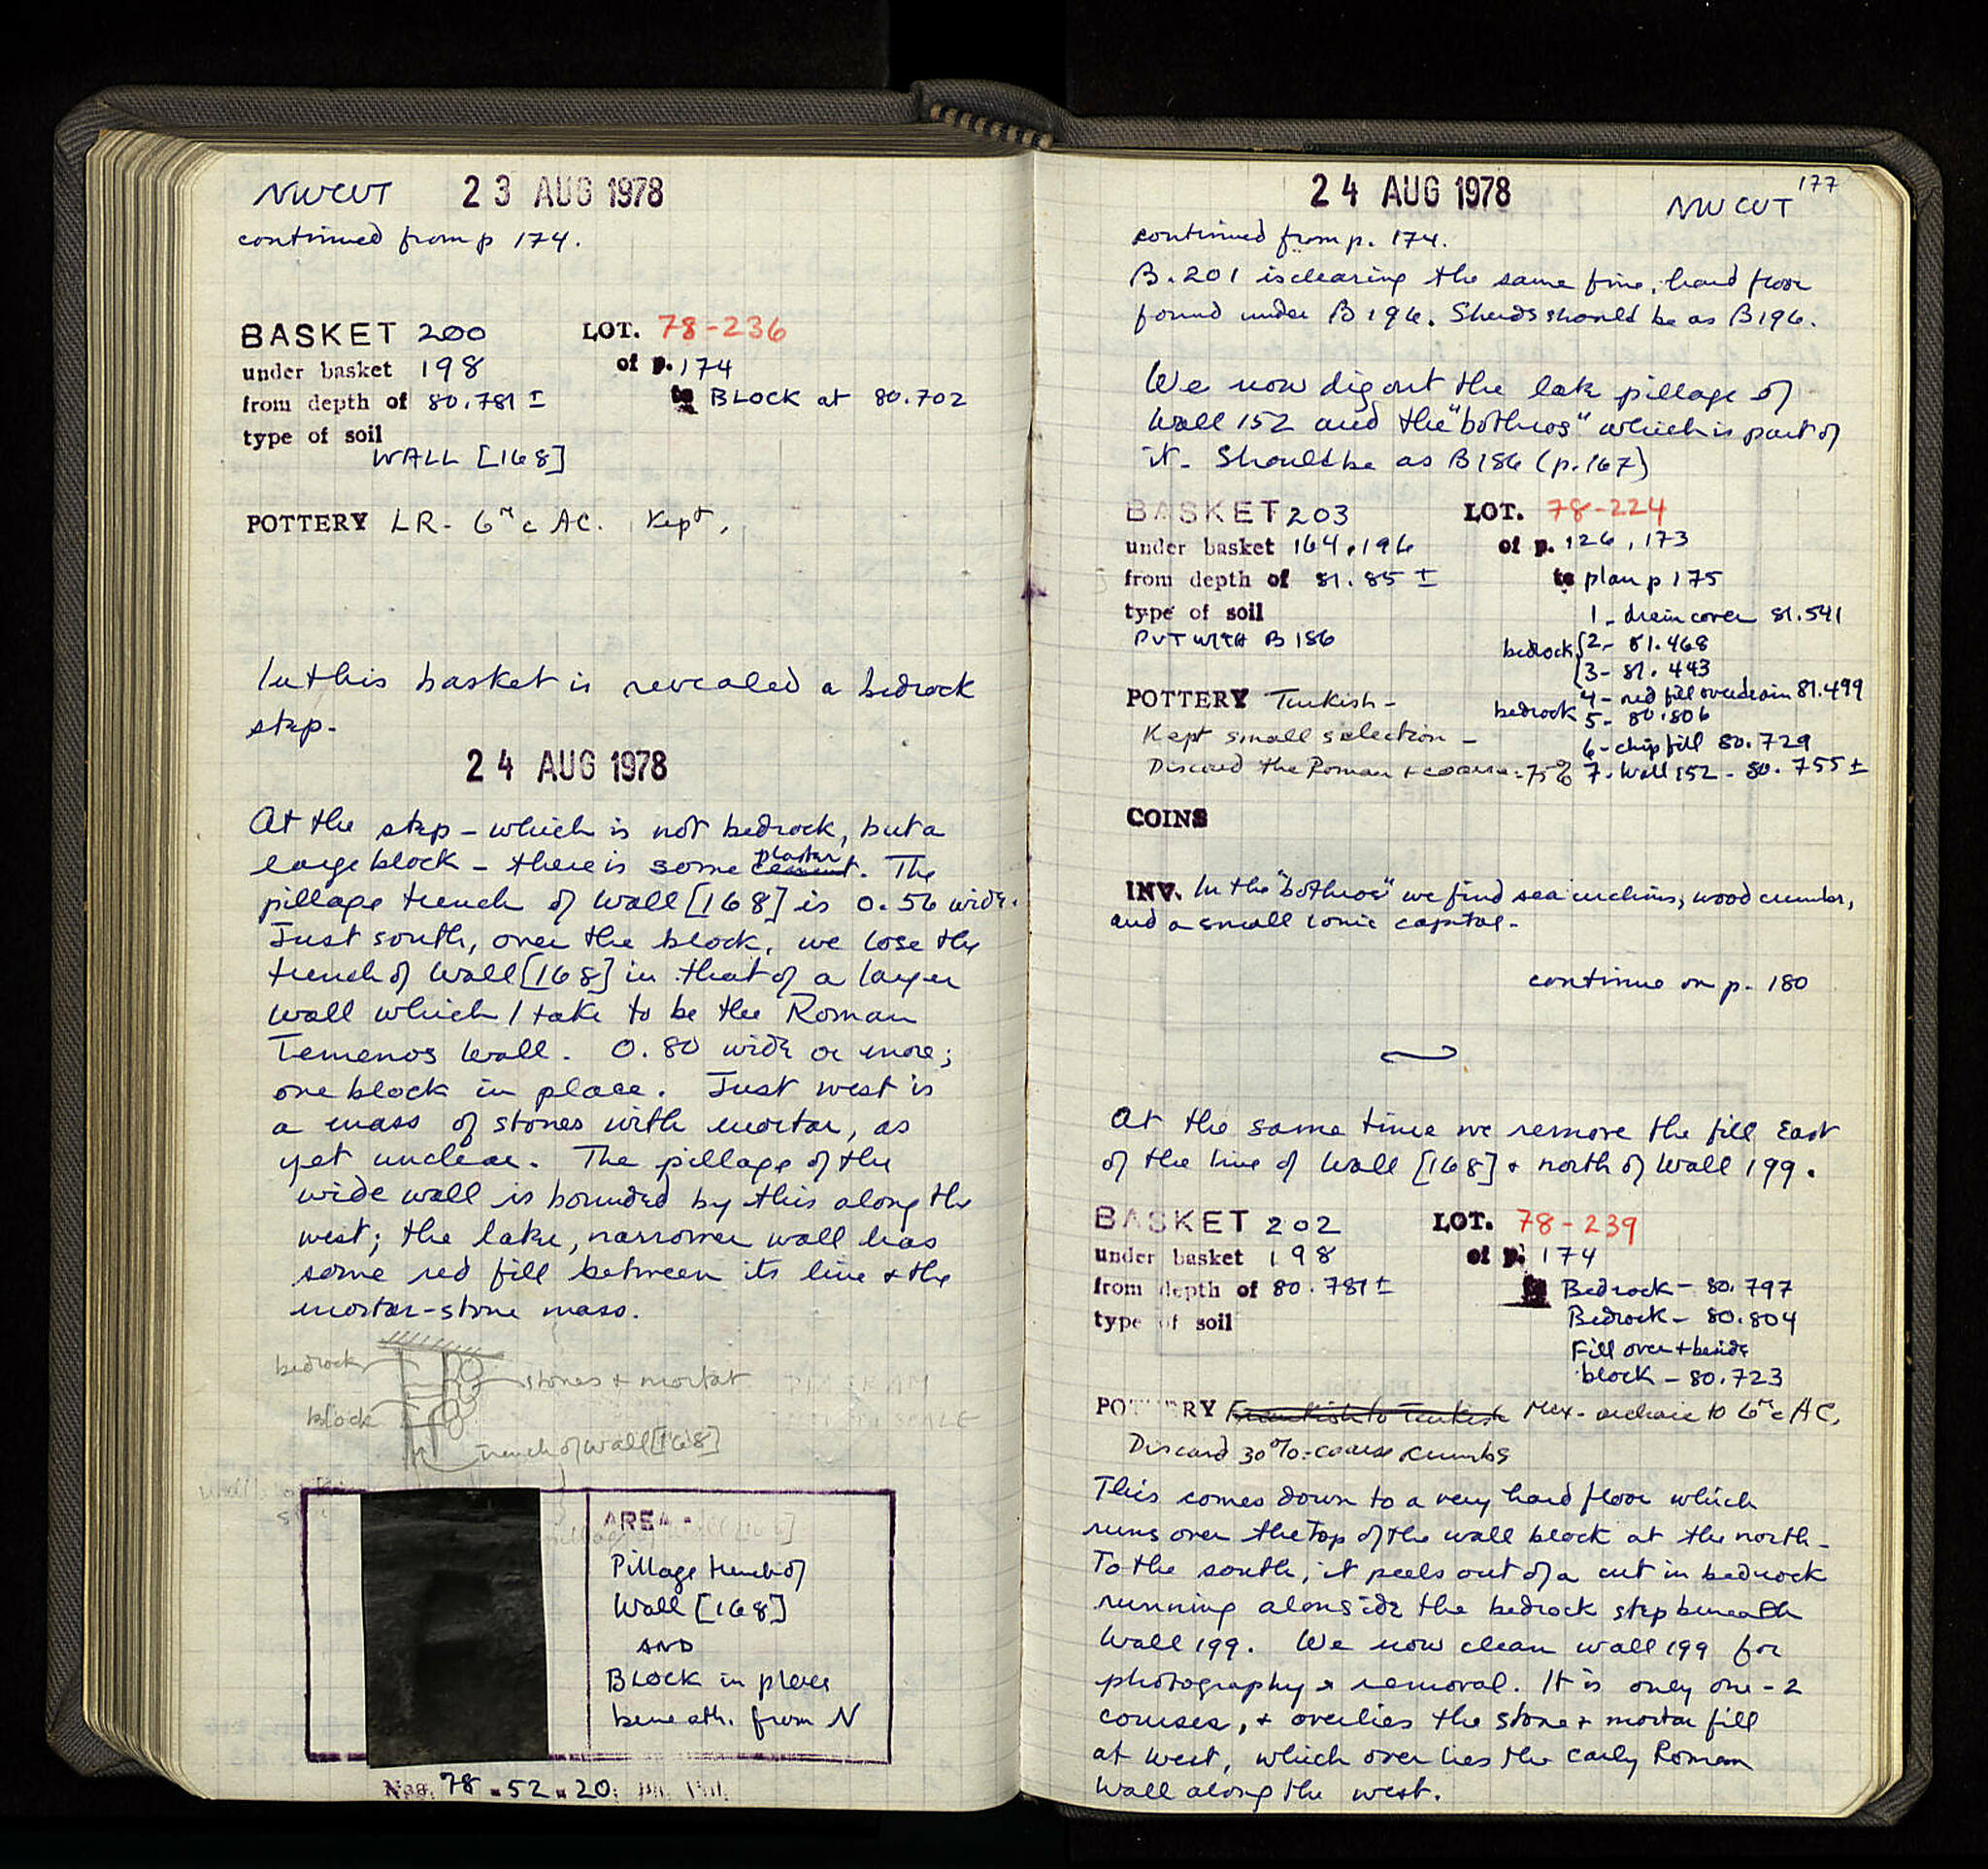 NW CUT 23 AUG 1978
continued from p 174.
BASKET 200 LOT. 78-236
under basket 198 of p. 174
from depth of 80.781 ± to BLOCK at 80.702
type of soil
WALL [168]
POTTERY LR - 6th c AC. Kept,
In this basket is revealed a bedrock
step.
24 AUG 1978
At the step - which is not bedrock, but a
large block - there is some cement plaster. The
pillage trench of Wall [168] is 0.56 wide.
Just south, over the block, we lose the
trench of Wall [168] in that of a larger
wall which I take to be the Roman
Temenos Wall. 0.80 wide or more;
one block in place. Just west is
a mass of stones with mortar, as
yet unclear. The pillage of the
wide wall is bounded by this along the
west; the later, narrower wall has
some red fill between its line & the
mortar-stone mass.
bedrock
stones & mortar
block
trench of Wall [168]
AREA -
Pillage trench of
Wall [168]
AND
BLOCK in place
beneath. from N
Neg. 78-52-20
177
24 AUG 1978 NW CUT
continued from p. 174.
B.201 is clearing the same fine, hard floor
found under B196. Sherds should be as B196.
We now dig out the late pillage of
Wall 152 and the "bothros" which is part of
it. Should be as B186 (p.167)
BASKET 203 LOT. 78-224
under basket 164, 196 of p. 126, 173
from depth of 81.85 ± to plan p 175
type of soil 1 - drain cover 81.541
PUT WITH B 186 bedrock {2 - 81.468
{3 - 81.443
4 - red fill over drain 81.499
POTTERY Turkish - bedrock 5 - 80.806
Kept small selection - 6 - chip fill 80.729
Discard the Roman + coarse = 75% 7 - Wall 152 - 80.755 ±
COINS
INV. In the "bothros" we find sea urchins, wood crumbs,
and a small ionic capital.
continue on p. 180
At the same time we remove the fill East
of the line of Wall [168] & north of Wall 199.
BASKET 202 LOT. 78-239
under basket 198 of p. 174
from depth of 80.781 ± to Bedrock - 80.797
type of soil Bedrock - 80.804
Fill over + beside
block - 80.723
POTTERY Frankish to Turkish Mix - archaic to 6th c AC.
Discard 30%: coarse crumbs
This comes down to a very hard floor which
runs over the top of the wall block at the north -
To the south, it peels out of a cut in bedrock
running alongside the bedrock step beneath
Wall 199. We now clean wall 199 for
photography & removal. It is only one - 2
courses, & overlies the stone & mortar fill
at west, which overlies the early Roman
Wall along the west.